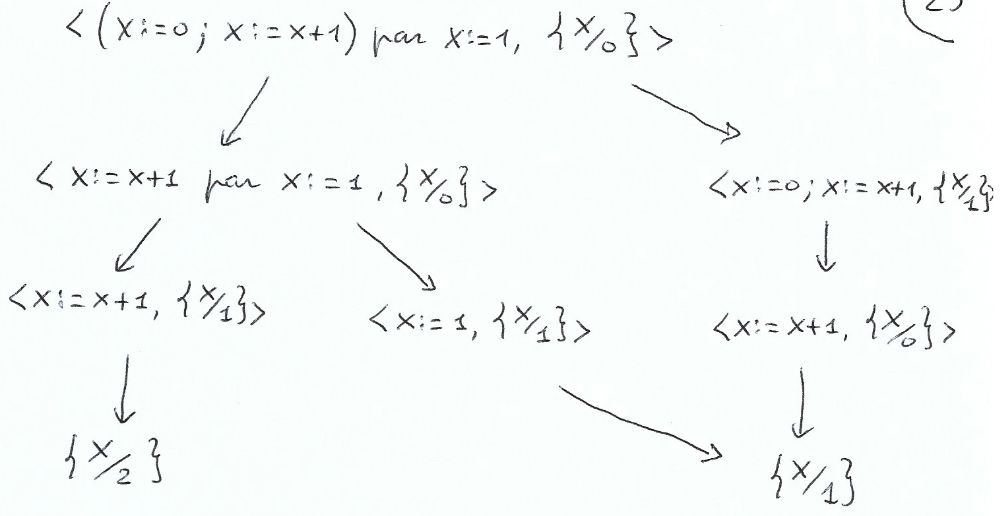 23
< (x:=0; x:=x+1) par x:=1, {x/0} >
< x:=x+1 par x:=1, {x/0} >
<x:=0; x:=x+1, {x/1}
<x:=x+1, {x/1}>
<x:=1, {x/1}>
<x:=x+1, {x/0}>
{x/2}
{x/1}